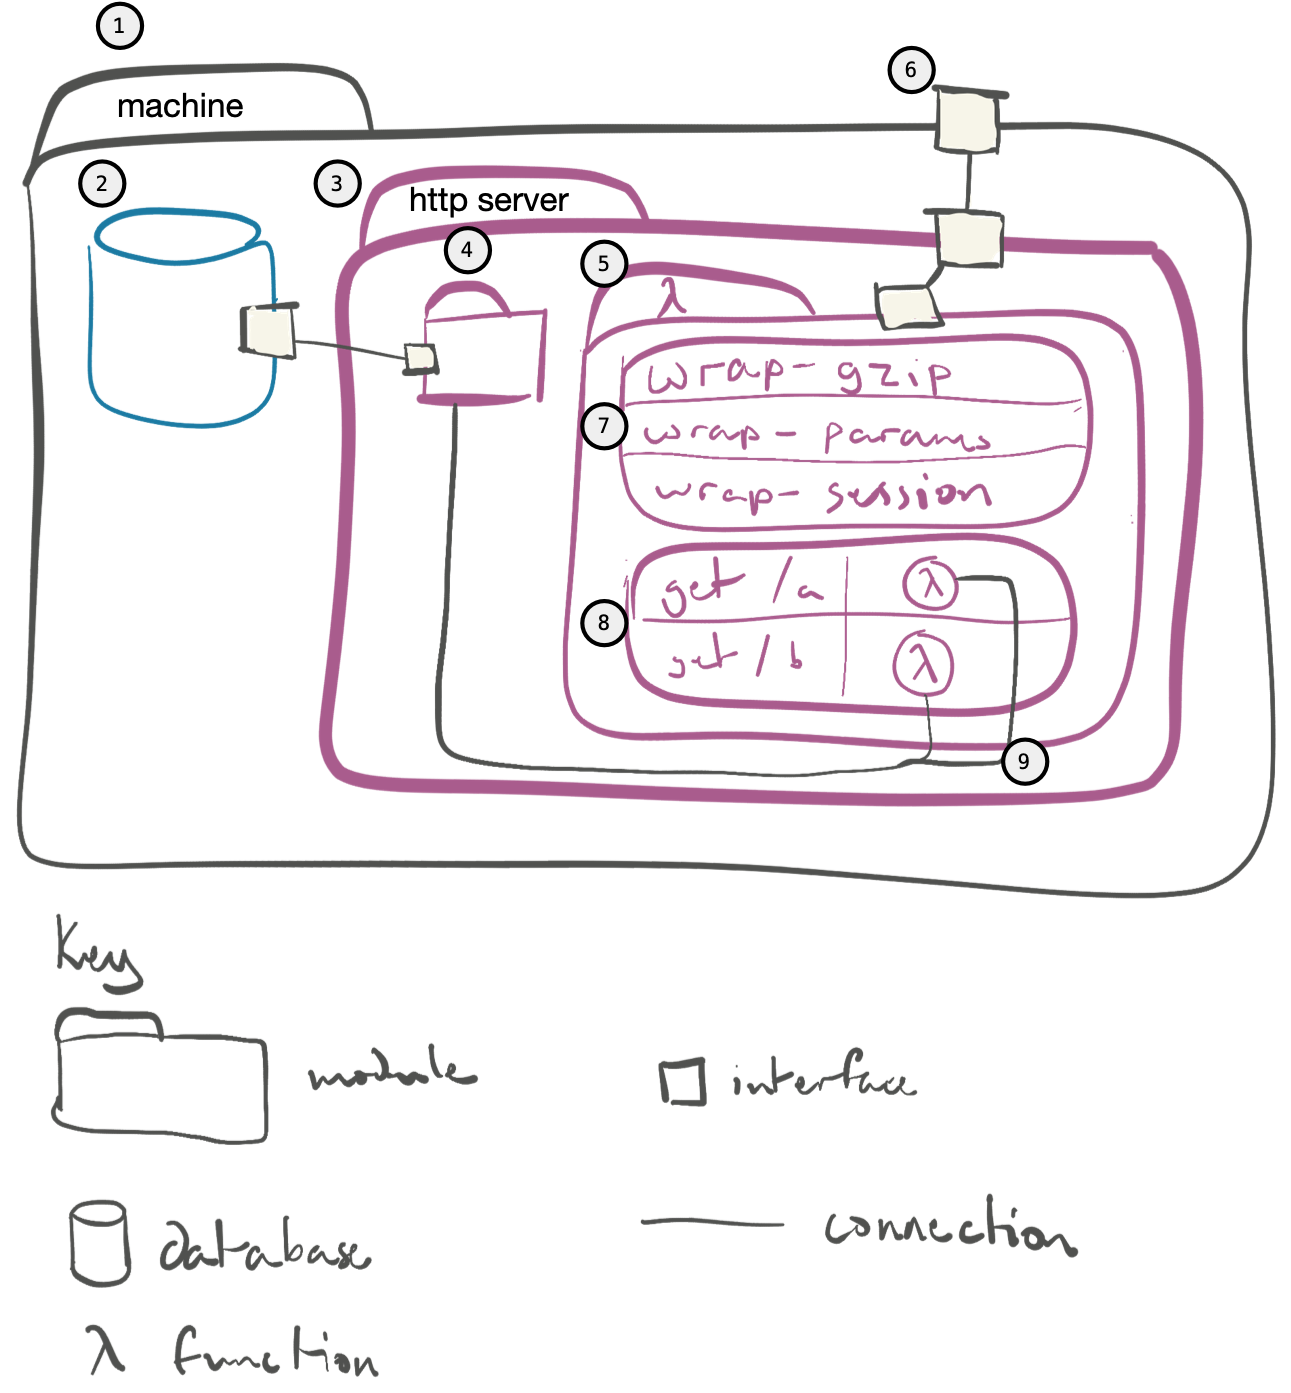 1
machine
6
2
3
http server
4
5
λ
wrap-gzip
7
wrap-params
wrap-session
get /a λ
8
get /b λ
9
Key
module
interface
database
connection
λ function